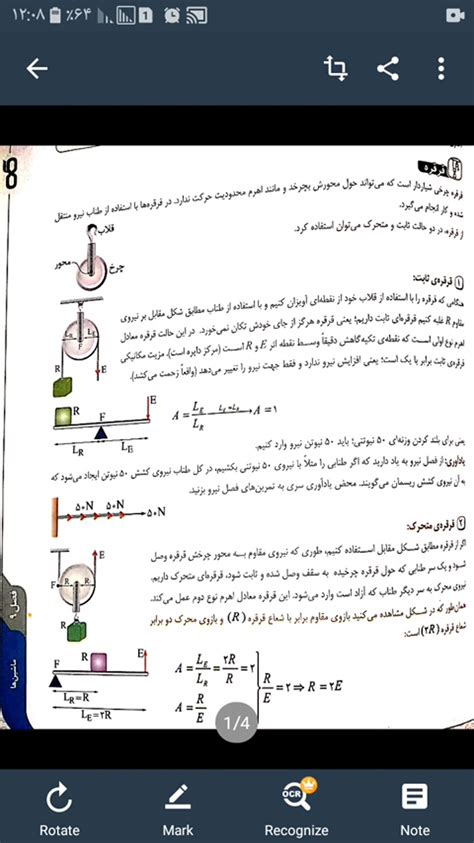 ۱۲:۰۸ ٪۶۴ 1
قرقره
قرقره چرخی شیاردار است که می‌تواند حول محورش بچرخد و مانند اهرم محدودیت حرکت ندارد. در قرقره‌ها با استفاده از طناب نیرو منتقل
شده و کار انجام می‌گیرد.
از قرقره، در دو حالت ثابت و متحرک می‌توان استفاده کرد.
قلاب
محور
چرخ
۱ قرقره‌ی ثابت:
هنگامی که قرقره را با استفاده از قلاب خود از نقطه‌ای آویزان کنیم و با استفاده از طناب مطابق شکل مقابل بر نیروی
مقاوم R غلبه کنیم قرقره‌ای ثابت داریم؛ یعنی قرقره هرگز از جای خودش تکان نمی‌خورد. در این حالت قرقره معادل
اهرم نوع اولی است که نقطه‌ی تکیه‌گاهش دقیقاً وسط نقطه اثر E و R است (مرکز دایره است). مزیت مکانیکی
قرقره‌ی ثابت برابر با یک است؛ یعنی افزایش نیرو ندارد و فقط جهت نیرو را تغییر می‌دهد (واقعاً زحمت می‌کشد).
LR LE
F
R E
R F E
LR LE
A = LE / LR LE=LR → A = ۱
یعنی برای بلند کردن وزنه‌ای ۵۰ نیوتنی؛ باید ۵۰ نیوتن نیرو وارد کنیم.
یادآوری: از فصل نیرو به یاد دارید که اگر طنابی را مثلاً با نیروی ۵۰ نیوتن بکشیم، در کل طناب نیروی کشش ۵۰ نیوتن ایجاد می‌شود که
به آن نیروی کشش ریسمان می‌گویند. محض یادآوری سری به تمرین‌های فصل نیرو بزنید.
۵۰N ۵۰N ۵۰N
۲ قرقره‌ی متحرک:
اگر از قرقره مطابق شکل مقابل استفاده کنیم، طوری که نیروی مقاوم به محور چرخش قرقره وصل
شود و یک سر طنابی که حول قرقره چرخیده به سقف وصل شده و ثابت شود، قرقره‌ای متحرک داریم.
نیروی محرک به سر دیگر طناب که آزاد است وارد می‌شود. این قرقره معادل اهرم نوع دوم عمل می‌کند.
همان‌طور که در شکل مشاهده می‌کنید بازوی مقاوم برابر با شعاع قرقره (R) و بازوی محرک دو برابر
شعاع قرقره (۲R) است:
E
F R R
R
F R E
LR=R
LE=۲R
A = LE / LR = ۲R / R = ۲
A = R / E
R / E = ۲ ⇒ R = ۲E
فصل ۹
ماشین‌ها
1/4
Rotate
Mark
OCR
Recognize
Note